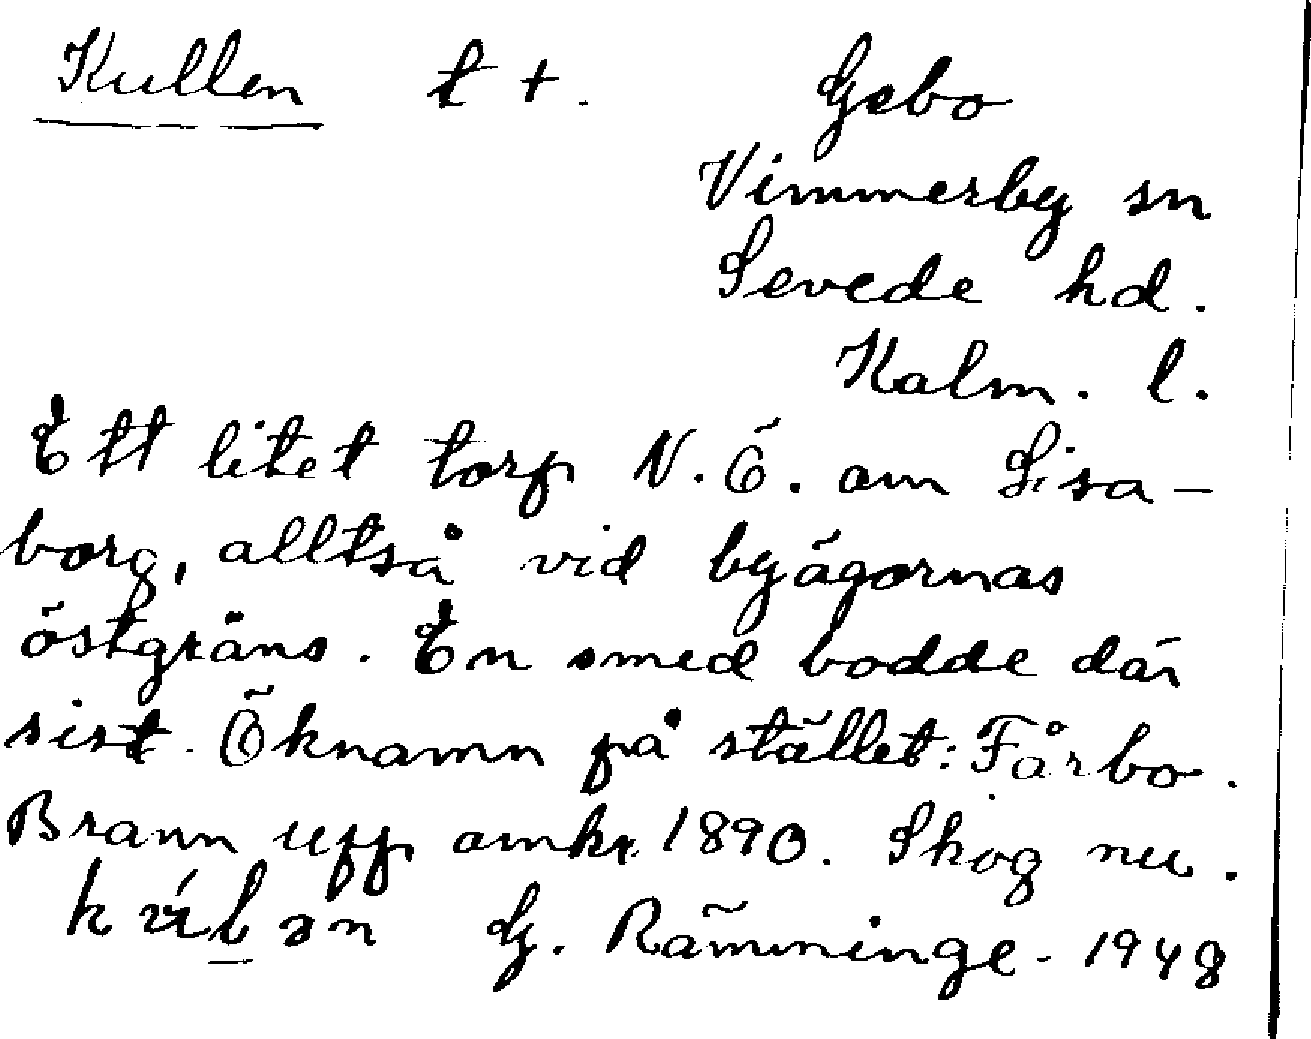 Kullen t +. Gebo
Vimmerby sn
Sevede hd.
Kalm. l.
Ett litet torp N.Ö. om Lisa-
borg, alltså vid byägornas
östgräns. En smed bodde där
sist. Öknamn på stället: Fårbo.
Brann upp omkr. 1890. Skog nu.
G. Rämminge. 1948